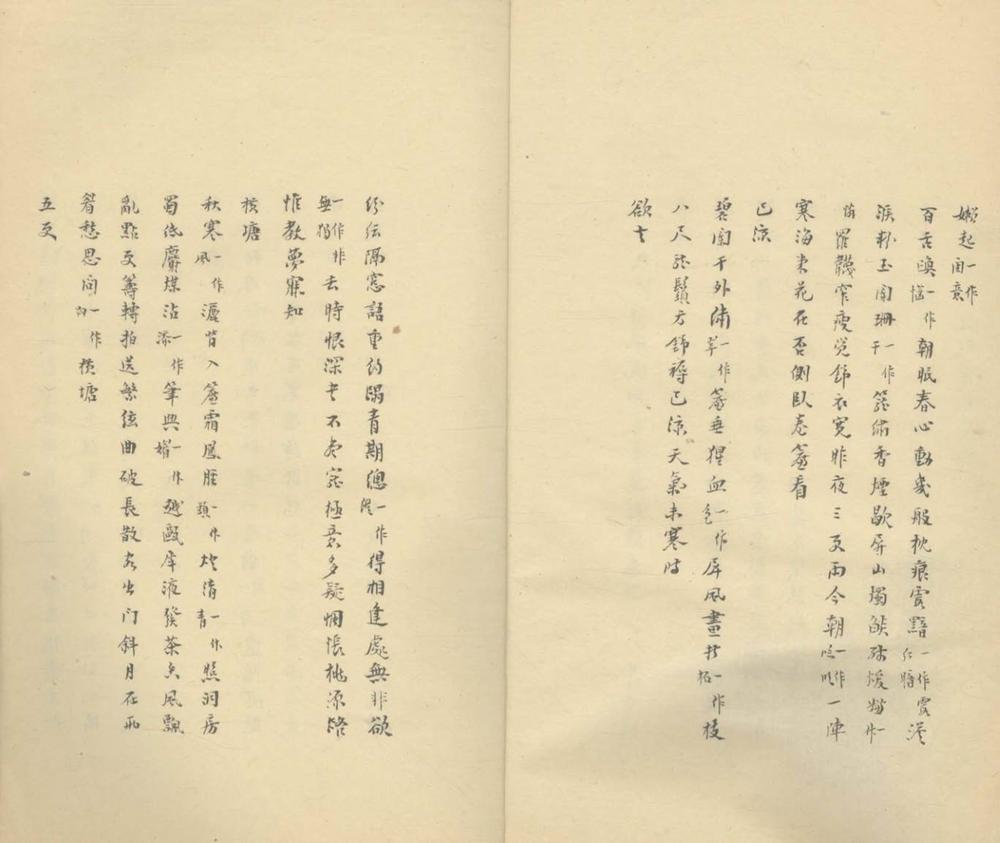 嬾起一作閨意
百舌喚一作惱朝眠春心動幾般枕痕霞黯一作霞紅暗澹
淚粉玉闌珊一作干籠繡香煙歇屏山燭燄殘煖嫌一作
惱羅韈窄瘦覺錦衣寬昨夜三更雨今朝一作臨明一陣
寒海棠花在否側臥卷簾看
已涼
碧闌干外繡一作翠簾垂猩血一作色屏風畫折一作柘枝
八尺龍鬚方錦褥已涼天氣未寒時
欲去
紛紜隔窗語重約蹋青期總一作縱得相逢處無非欲
一作無獨一作非去時恨深書不盡寵極意多疑惆悵桃源路
惟教夢寐知
橫塘
秋寒一作風灑背入簾霜鳳脛一作頸燈清一作青照洞房
蜀紙麝煤沾一作添筆興一作媚越甌犀液發茶香風飄
亂點更籌轉拍送繁弦曲破長散客出門斜月在兩
眉愁思問一作向橫塘
五更